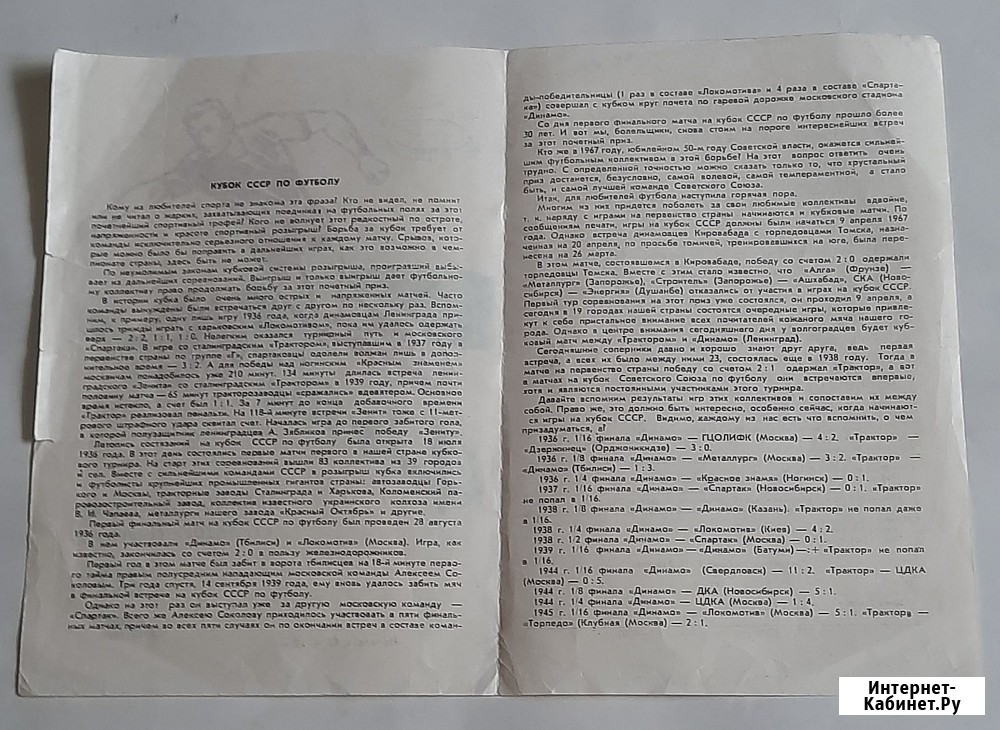 КУБОК СССР ПО ФУТБОЛУ
Кому из любителей спорта не знакома эта фраза! Кто не видел, не помнит
или не читал о жарких, захватывающих поединках на футбольных полях за этот
почетнейший спортивный трофей! Кого не волнует этот редкостный по остроте,
напряженности и красоте спортивный розыгрыш! Борьба за кубок требует от
команды исключительно серьезного отношения к каждому матчу. Срывов, кото-
рые можно было бы поправить в дальнейших играх, как это возможно в чем-
пионате страны, здесь быть не может.
По неумолимым законам кубковой системы розыгрыша, проигравший выбы-
вает из дальнейших соревнований. Выигрыш и только выигрыш дает футбольно-
му коллективу право продолжать борьбу за этот почетный приз.
В истории кубка было очень много острых и напряженных матчей. Часто
команды вынуждены были встречаться друг с другом по нескольку раз. Вспом-
ним, к примеру, одну лишь игру 1936 года, когда динамовцам Ленинграда при-
шлось трижды играть с харьковским «Локомотивом», пока им удалось одержать
верх — 2:2, 1:1, 1:0. Нелегким оказался турнирный путь и московского
«Спартака». В игре со сталинградским «Трактором», выступавшим в 1937 году в
первенстве страны по группе «Г», спартаковцы одолели волжан лишь в допол-
нительное время — 3:2. А для победы над ногинским «Красным знаменем»
москвичам понадобилось уже 210 минут. 134 минуты длилась встреча ленин-
градского «Зенита» со сталинградским «Трактором» в 1939 году, причем почти
половину матча — 65 минут тракторозаводцы «сражались» вдевятером. Основное
время истекло, а счет был 1:1. За 7 минут до конца добавочного времени
«Трактор» реализовал пенальти. На 118-й минуте встречи «Зенит» тоже с 11-мет-
рового штрафного удара сквитал счет. Началась игра до первого забитого гола,
в которой полузащитник ленинградцев А. Зябликов принес победу «Зениту».
Летопись состязаний на кубок СССР по футболу была открыта 18 июля
1936 года. В этот день состоялись первые матчи первого в нашей стране кубко-
вого турнира. На старт этих соревнований вышли 83 коллектива из 39 городов
и сел. Вместе с сильнейшими командами СССР в розыгрыш кубка включились
и футболисты крупнейших промышленных гигантов страны: автозаводцы Горь-
кого и Москвы, тракторные заводы Сталинграда и Харькова, Коломенский па-
ровозостроительный завод, коллектив известного украинского колхоза имени
В. И. Чапаева, металлурги нашего завода «Красный Октябрь» и другие.
Первый финальный матч на кубок СССР по футболу был проведен 28 августа
1936 года.
В нем участвовали «Динамо» (Тбилиси) и «Локомотив» (Москва). Игра, как
известно, закончилась со счетом 2:0 в пользу железнодорожников.
Первый гол в этом матче был забит в ворота тбилисцев на 18-й минуте перво-
го тайма правым полусредним нападающим московской команды Алексеем Со-
коловым. Три года спустя, 14 сентября 1939 года, ему вновь удалось забить мяч
в финальной встрече на кубок СССР по футболу.
Однако на этот раз он выступал уже за другую московскую команду —
«Спартак». Всего же Алексею Соколову приходилось участвовать в пяти финаль-
ных матчах, причем во всех пяти случаях он по окончании встреч в составе коман-
ды-победительницы (1 раз в составе «Локомотива» и 4 раза в составе «Спарта-
ка») совершал с кубком круг почета по гаревой дорожке московского стадиона
«Динамо».
Со дня первого финального матча на кубок СССР по футболу прошло более
30 лет. И вот мы, болельщики, снова стоим на пороге интереснейших встреч
за этот почетный приз.
Кто же в 1967 году, юбилейном 50-м году Советской власти, окажется сильней-
шим футбольным коллективом в этой борьбе! На этот вопрос ответить очень
трудно. С определенной точностью можно сказать только то, что хрустальный
приз достанется, безусловно, самой волевой, самой темпераментной, а стало
быть, и самой лучшей команде Советского Союза.
Итак, для любителей футбола наступила горячая пора.
Многим из них придется поболеть за свои любимые коллективы вдвойне,
т. к. наряду с играми на первенство страны начинаются и кубковые матчи. По
сообщениям печати, игры на кубок СССР должны были начаться 9 апреля 1967
года. Однако встреча динамовцев Кировабада с торпедовцами Томска, назна-
ченная на 20 апреля, по просьбе томичей, тренировавшихся на юге, была пере-
несена на 26 марта.
В этом матче, состоявшемся в Кировабаде, победу со счетом 2:0 одержали
торпедовцы Томска. Вместе с этим стало известно, что «Алга» (Фрунзе) —
«Металлург» (Запорожье), «Строитель» (Запорожье) — «Ашхабад», СКА (Ново-
сибирск) — «Энергия» (Душанбе) отказались от участия в играх на кубок СССР.
Первый тур соревнования на этот приз уже состоялся, он проходил 9 апреля, а
сегодня в 19 городах нашей страны состоятся очередные игры, которые привле-
кут к себе пристальное внимание всех почитателей кожаного мяча нашего го-
рода. Однако в центре внимания сегодняшнего дня у волгоградцев будет куб-
ковый матч между «Трактором» и «Динамо» (Ленинград).
Сегодняшние соперники давно и хорошо знают друг друга, ведь первая
встреча, а всех их было между ними 23, состоялась еще в 1938 году. Тогда в
матче на первенство страны победу со счетом 2:1 одержал «Трактор», а вот
в матчах на кубок Советского Союза по футболу они встречаются впервые,
хотя и являются постоянными участниками этого турнира.
Давайте вспомним результаты игр этих коллективов и сопоставим их между
собой. Право же, это должно быть интересно, особенно сейчас, когда начинают-
ся игры на кубок СССР. Видимо, каждому из нас есть что вспомнить, о чем
призадуматься, а!
1936 г. 1/16 финала «Динамо» — ГЦОЛИФК (Москва) — 4:2. «Трактор» —
«Дзержинец» (Орджоникидзе) — 3:0.
1936 г. 1/8 финала «Динамо» — «Металлург» (Москва) — 3:2. «Трактор» —
«Динамо» (Тбилиси) — 1:3.
1936 г. 1/4 финала «Динамо» — «Красное знамя» (Ногинск) — 0:1.
1937 г. 1/16 финала «Динамо» — «Спартак» (Новосибирск) — 0:1. «Трактор»
не попал в 1/16.
1938 г. 1/8 финала «Динамо» — «Динамо» (Казань). «Трактор» не попал даже
в 1/16.
1938 г. 1/4 финала «Динамо» — «Локомотив» (Киев) — 4:2.
1938 г. 1/2 финала «Динамо» — «Спартак» (Москва) — 0:1.
1939 г. 1/16 финала «Динамо» — «Динамо» (Батуми) —:+ «Трактор» не попал
в 1/16.
1944 г. 1/16 финала «Динамо» (Свердловск) — 11:2. «Трактор» — ЦДКА
(Москва) — 0:5.
1944 г. 1/8 финала «Динамо» — ДКА (Новосибирск) — 5:1.
1944 г. 1/4 финала «Динамо» — ЦДКА (Москва) — 1:4.
1945 г. 1/16 финала «Динамо» — «Локомотив» (Москва) — 5:1. «Трактор» —
«Торпедо» (Клубная) (Москва) — 2:1.
Интернет-
Кабинет.Ру